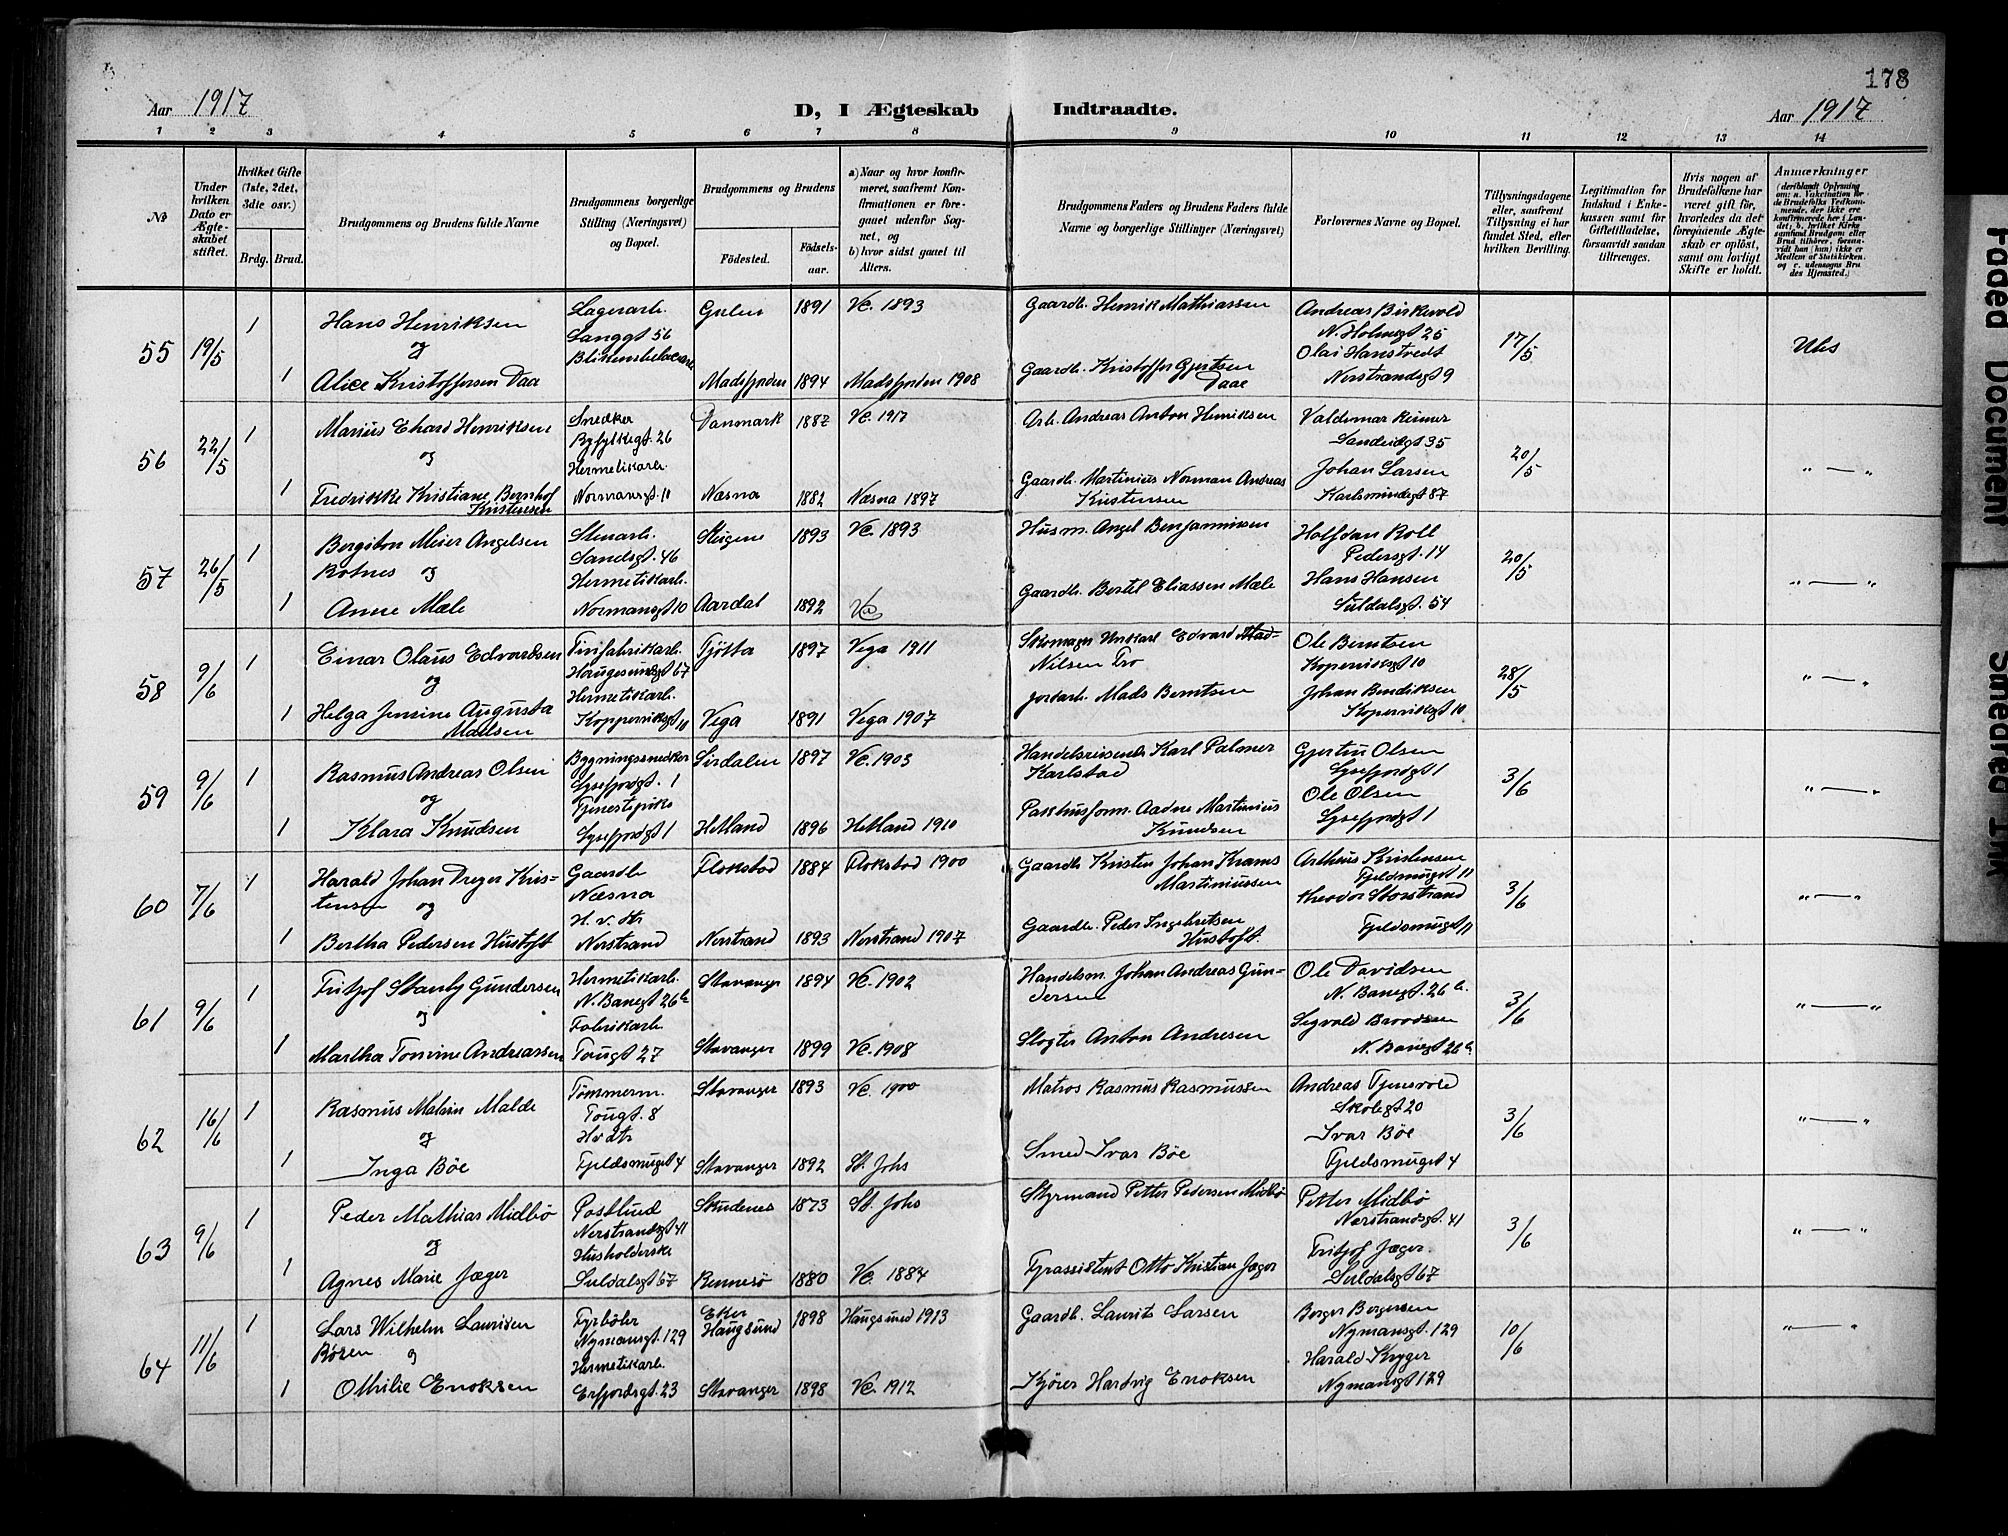 178
Aar 1917 D, I Ægteskab Indtraadte. Aar 1917
1 2 3 4 5 6 7 8 9 10 11 12 13 14
№
Under hvilken Dato er Ægteskabet stiftet.
Hvilket Gifte (1ste, 2det, 3die osv.)
Brdg. Brud.
Brudgommens og Brudens fulde Navne
Brudgommens borgerlige Stilling (Næringsvei) og Bopæl.
Brudgommens og Brudens
Fødested.
Fødsels-aar.
a) Naar og hvor konfirmeret, saafremt Konfirmationen er foregaaet udenfor Sognet, og
b) hvor sidst gaaet til Alters.
Brudgommens Faders og Brudens Faders fulde Navne og borgerlige Stillinger (Næringsvei)
Forlovernes Navne og Bopæl.
Tillysningsdagene eller, saafremt Tillysning ei har fundet Sted, efter hvilken Bevilling.
Legitimation for Indskud i Enkekassen samt for Giftetilladelse, forsaavidt saadan tiltrænges.
Hvis nogen af Brudefolkene har været gift før, hvorledes da det foregaaende Ægteskab er opløst, samt om lovligt Skifte er holdt.
Anmærkninger
(deriblandt Oplysning om: a. Vakcination for de Brudefolks Vedkommende, der ikke ere konfirmerede her i Landet; b. hvilket Kirkesamfund Brudgom eller Brud tilhører, forsaavidt han (hun) ikke er Medlem af Statskirken, og c. udensogns Brudes Hjemsted.)
55 19/5 1 Hans Henriksen Lagerarb. Langgt 56 Gulen 1891 Ve. 1893 Gaardb. Henrik Mathiassen Andreas Birkevold N. Holmegt 25 17/5
og
1 Alice Kristoffersen Daa Madsfjorden 1894 Madsfjorden 1908 Gaardb. Kristoffer Gjertsen Daae Olai Hanstvedt Nerstrandsgt 9
56 22/5 1 Marius Ehard Henriksen Snedker Ryfylkegt. 26 Danmark 1887 Ve. 1917 Arb. Andreas Anton Henriksen Valdemar Reimer Sandeidgt 35 20/5 " — "
og
1 Fredrikke Kristiane Bernhof Kristensen Hermetikarb. Normansgt 11 Næsna 1882 Næsna 1897 Gaardb. Martinius Norman Andreas Kristensen Johan Larsen Karlsmindegt 87
57 26/5 1 Bergiton Meier Angelsen Rotnes Stenarb. Sandsgt. 46 Steigene 1893 Ve. 1893 Husm. Angel Benjaminsen Halfdan Roll Pedersgt. 14 20/5 " — "
og
1 Anne Mæle Hermetikarb. Normansgt 10 Aardal 1892 Ve Gaardb. Bertil Eliassen Mæle Hans Hansen Suldalsgt. 54
58 9/6 1 Einar Olaus Edvardsen Haugesundsgt 67 Tjøtta 1897 Vega 1911 Edvard Nilsen Tro Ole Berntsen Kopervikgt 10 28/5 " — "
og
1 Helga Jensine Augusta Madsen Hermetikarb. Koppervikgt 10 Vega 1891 Vega 1907 Jordarb. Mads Berntsen Johan Bendiksen Kopervikgt 10
59 9/6 1 Rasmus Andreas Olsen Bygningssnedker Lysefjordgt. 1 Sirdalen 1897 Ve. 1903 Handelsreisende Karl Palmer Karlstad Gjertin Olsen Lysefjordgt 1 3/6 " — "
og
1 Klara Knudsen Tjenestepike Lysefjordgt 1 Hetland 1896 Hetland 1910 Pakhusform. Aadne Martinius Knudsen Ole Olsen Lysefjordgt 1
60 7/6 1 Harald Johan Dreyer Kristensen Gaardb Næsna Flokstad 1884 Flokstad 1900 Gaardb. Kristen Johan Krams Martiniussen Arthur Kristensen Fjeldsmuget 11 3/6 " — "
og
1 Bertha Pedersen Hustoft H. v. dtr Nerstrand Nerstrand 1893 Nerstrand 1907 Gaardb. Peder Ingebretsen Hustoft. Theodor Storstrand Fjeldsmuget 11
61 9/6 1 Fritjof Stanly Gundersen Hermetikarb. N. Banegt 26 b Stavanger 1894 Ve. 1902 Handelsm. Johan Andreas Gundersen Ole Davidsen N. Banegt. 26 b. 3/6 " — "
og
1 Martha Tomine Andreassen Fabrikarb. Tougt 27 Stavanger 1899 Ve. 1908 Slagter Anton Andresen Sigvald Brodsen N. Banegt 26 b
62 16/6 1 Rasmus Malain Malde Tømmerm. Tougt. 8 Stavanger 1893 Ve. 1900 Matros Rasmus Rasmussen Andreas Tjensvold Skolegt 20 3/6 " — "
og
1 Inga Bøe Hv dtr Fjeldsmuget 4 Stavanger 1892 St. Johs Smed Ivar Bøe Ivar Bøe Fjeldsmuget 4
63 9/6 1 Peder Mathias Midbø Postbud Nerstrandsgt 41 Skudenes 1873 St. Johs Styrmand Petter Pedersen Midbø Petter Midbø Nerstrandsgt. 41 3/6 " — "
og
1 Agnes Marie Jæger Husholderske Suldalsgt 67 Rennesø 1880 Ve. 1884 Fyrassistent Otto Kristian Jæger Fritjof Jæger. Suldalsgt 67
64 11/6 1 Lars Wilhelm Lauritsen Røsen Fyrbøter Nymansgt. 129 Eker Haugsund 1898 Haugsund 1913 Gaardb. Laurits Larsen Borger Bergersen Nymansgt. 129 10/6 " — "
og
1 Othilie Enoksen Hermetikarb. Erfjordsgt. 23 Stavanger 1898 Ve. 1912 Kjører Hartvig Enoksen Harald Kryger Nymansgt 129
Faded Document
Smeared Ink